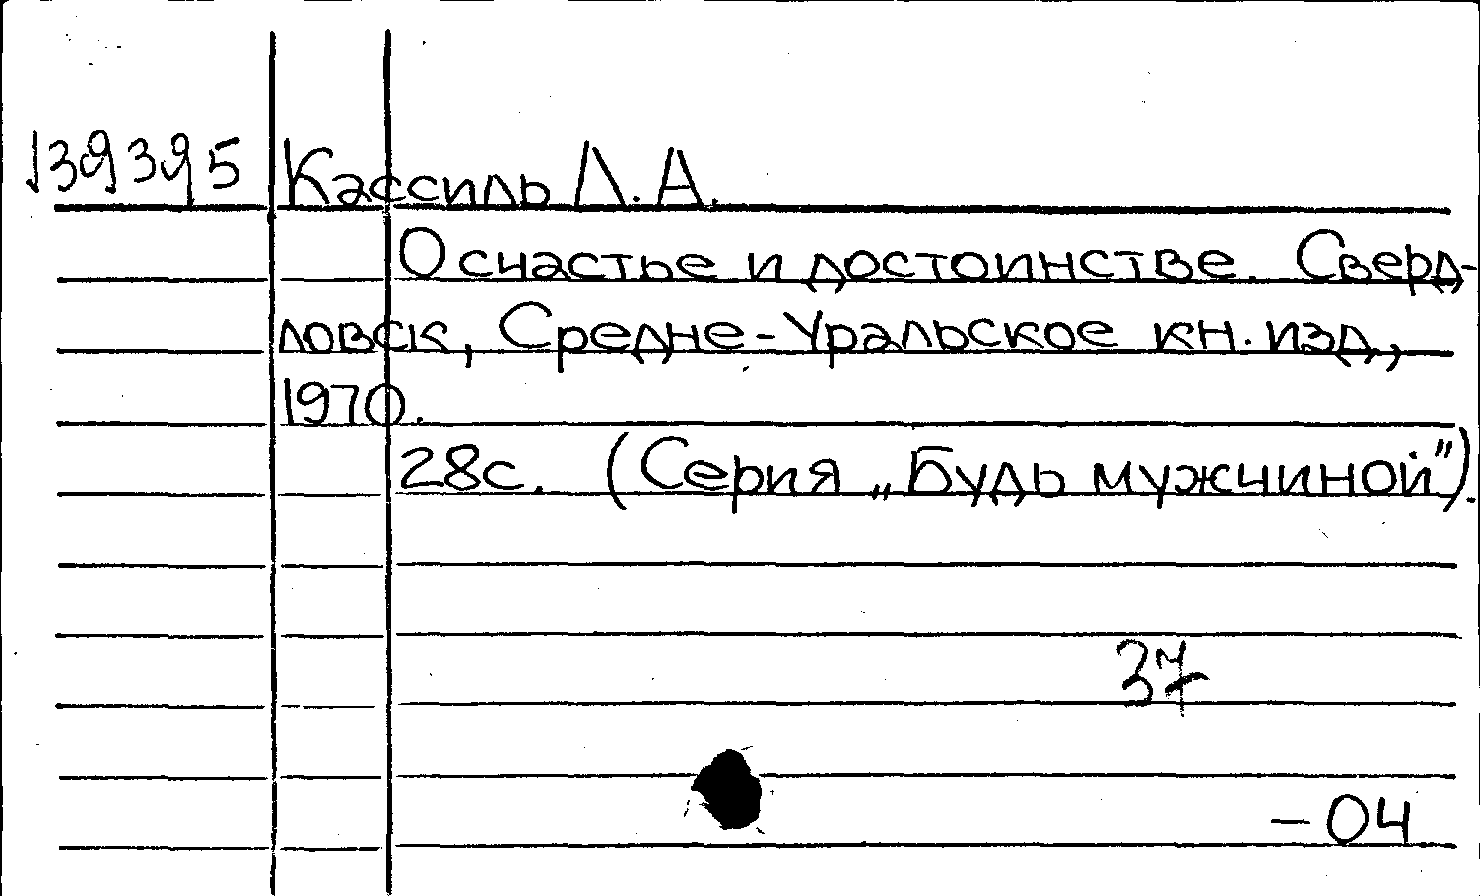 139395 Кассиль Л. А.
О счастье и достоинстве. Сверд-
ловск, Средне-Уральское кн. изд.,
1970.
28с. (Серия „Будь мужчиной").
37
– 04